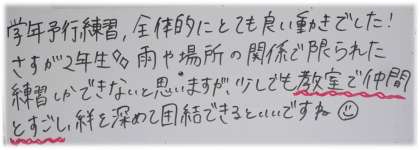 学年予行練習，全体的にとても良い動きでした！
さすが2年生 雨や場所の関係で限られた
練習しかできないと思いますが、少しでも教室で仲間
とすごし、絆を深めて団結できるといいですね